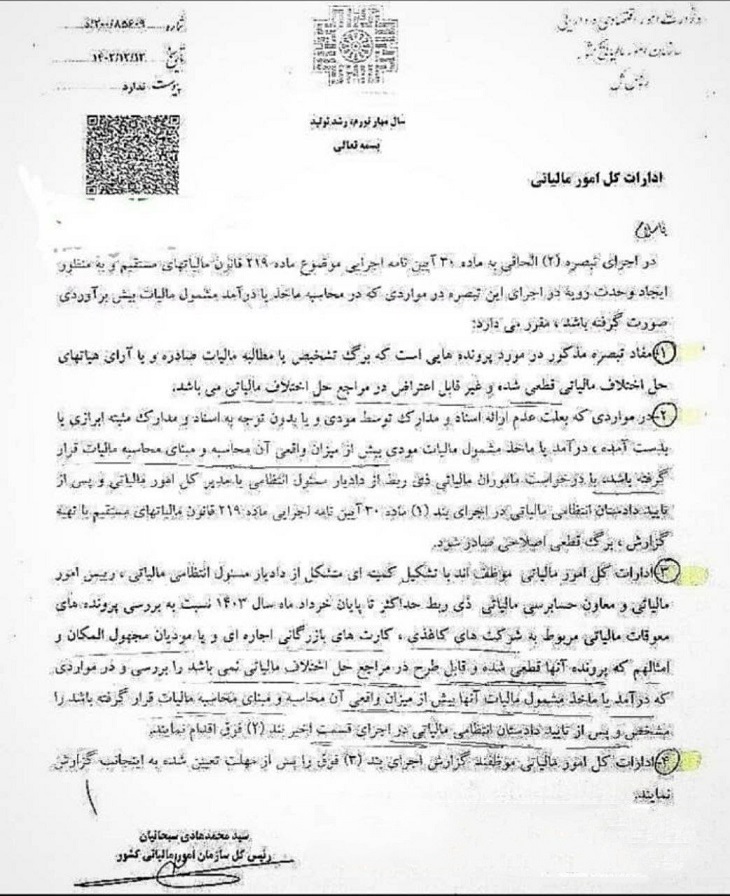 وزارت امور اقتصادی و دارایی
سازمان امور مالیاتی کشور
رئیس کل
شماره ۵/۲۰۰/۸۵۶۰۹
تاریخ ۱۴۰۲/۱۲/۱۲
پیوست ندارد
سال مهار تورم، رشد تولید
بسمه تعالی
ادارات کل امور مالیاتی
باسلام
در اجرای تبصره (۲) الحاقی به ماده ۳۰ آیین نامه اجرایی موضوع ماده ۲۱۹ قانون مالیاتهای مستقیم و به منظور
ایجاد وحدت رویه در اجرای این تبصره در مواردی که در محاسبه ماخذ یا درآمد مشمول مالیات بیش برآوردی
صورت گرفته باشد ، مقرر می دارد:
۱- مفاد تبصره مذکور در مورد پرونده هایی است که برگ تشخیص یا مطالبه مالیات صادره و یا آرای هیاتهای
حل اختلاف مالیاتی قطعی شده و غیر قابل اعتراض در مراجع حل اختلاف مالیاتی می باشد.
۲- در مواردی که بعلت عدم ارائه اسناد و مدارک توسط مودی و یا بدون توجه به اسناد و مدارک مثبته ابرازی یا
بدست آمده ، درآمد یا ماخذ مشمول مالیات مودی بیش از میزان واقعی آن محاسبه و مبنای محاسبه مالیات قرار
گرفته باشد، با درخواست ماموران مالیاتی ذی ربط از دادیار مسئول انتظامی یا مدیر کل امور مالیاتی و پس از
تایید دادستان انتظامی مالیاتی در اجرای بند (۱) ماده ۳۰ آیین نامه اجرایی ماده ۲۱۹ قانون مالیاتهای مستقیم با تهیه
گزارش ، برگ قطعی اصلاحی صادر شود.
۳- ادارات کل امور مالیاتی موظف اند با تشکیل کمیته ای متشکل از دادیار مسئول انتظامی مالیاتی ، رییس امور
مالیاتی و معاون حسابرسی مالیاتی ذی ربط حداکثر تا پایان خرداد ماه سال ۱۴۰۳ نسبت به بررسی پرونده های
معوقات مالیاتی مربوط به شرکت های کاغذی ، کارت های بازرگانی اجاره ای و یا مودیان مجهول المکان و
امثالهم که پرونده آنها قطعی شده و قابل طرح در مراجع حل اختلاف مالیاتی نمی باشد را بررسی و در مواردی
که درآمد یا ماخذ مشمول مالیات آنها بیش از میزان واقعی آن محاسبه و مبنای محاسبه مالیات قرار گرفته باشد را
مشخص و پس از تایید دادستان انتظامی مالیاتی در اجرای قسمت اخیر بند (۲) فوق اقدام نمایند.
۴- ادارات کل امور مالیاتی موظفند گزارش اجرای بند (۳) فوق را پس از مهلت تعیین شده به اینجانب گزارش
نمایند.
سید محمدهادی سبحانیان
رئیس کل سازمان امور مالیاتی کشور